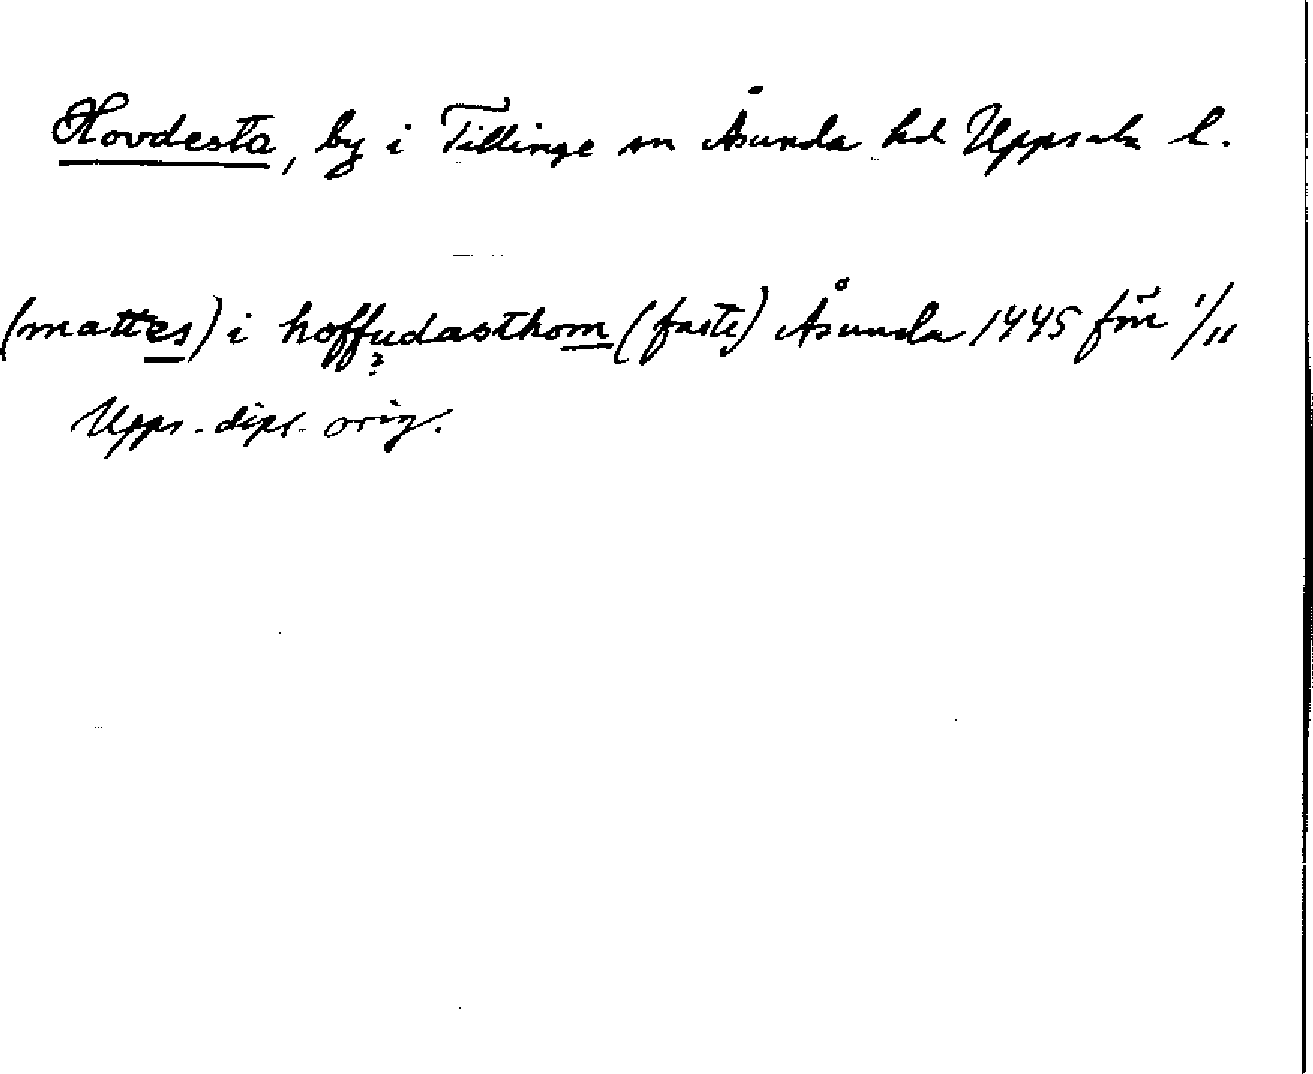 Hovdesta, by i Tillinge sn Åsunda hd Uppsala l.
(mattes) i hoffudasthom (faste) Åsunda 1445 för 1/11
Upps. dipl. orig.